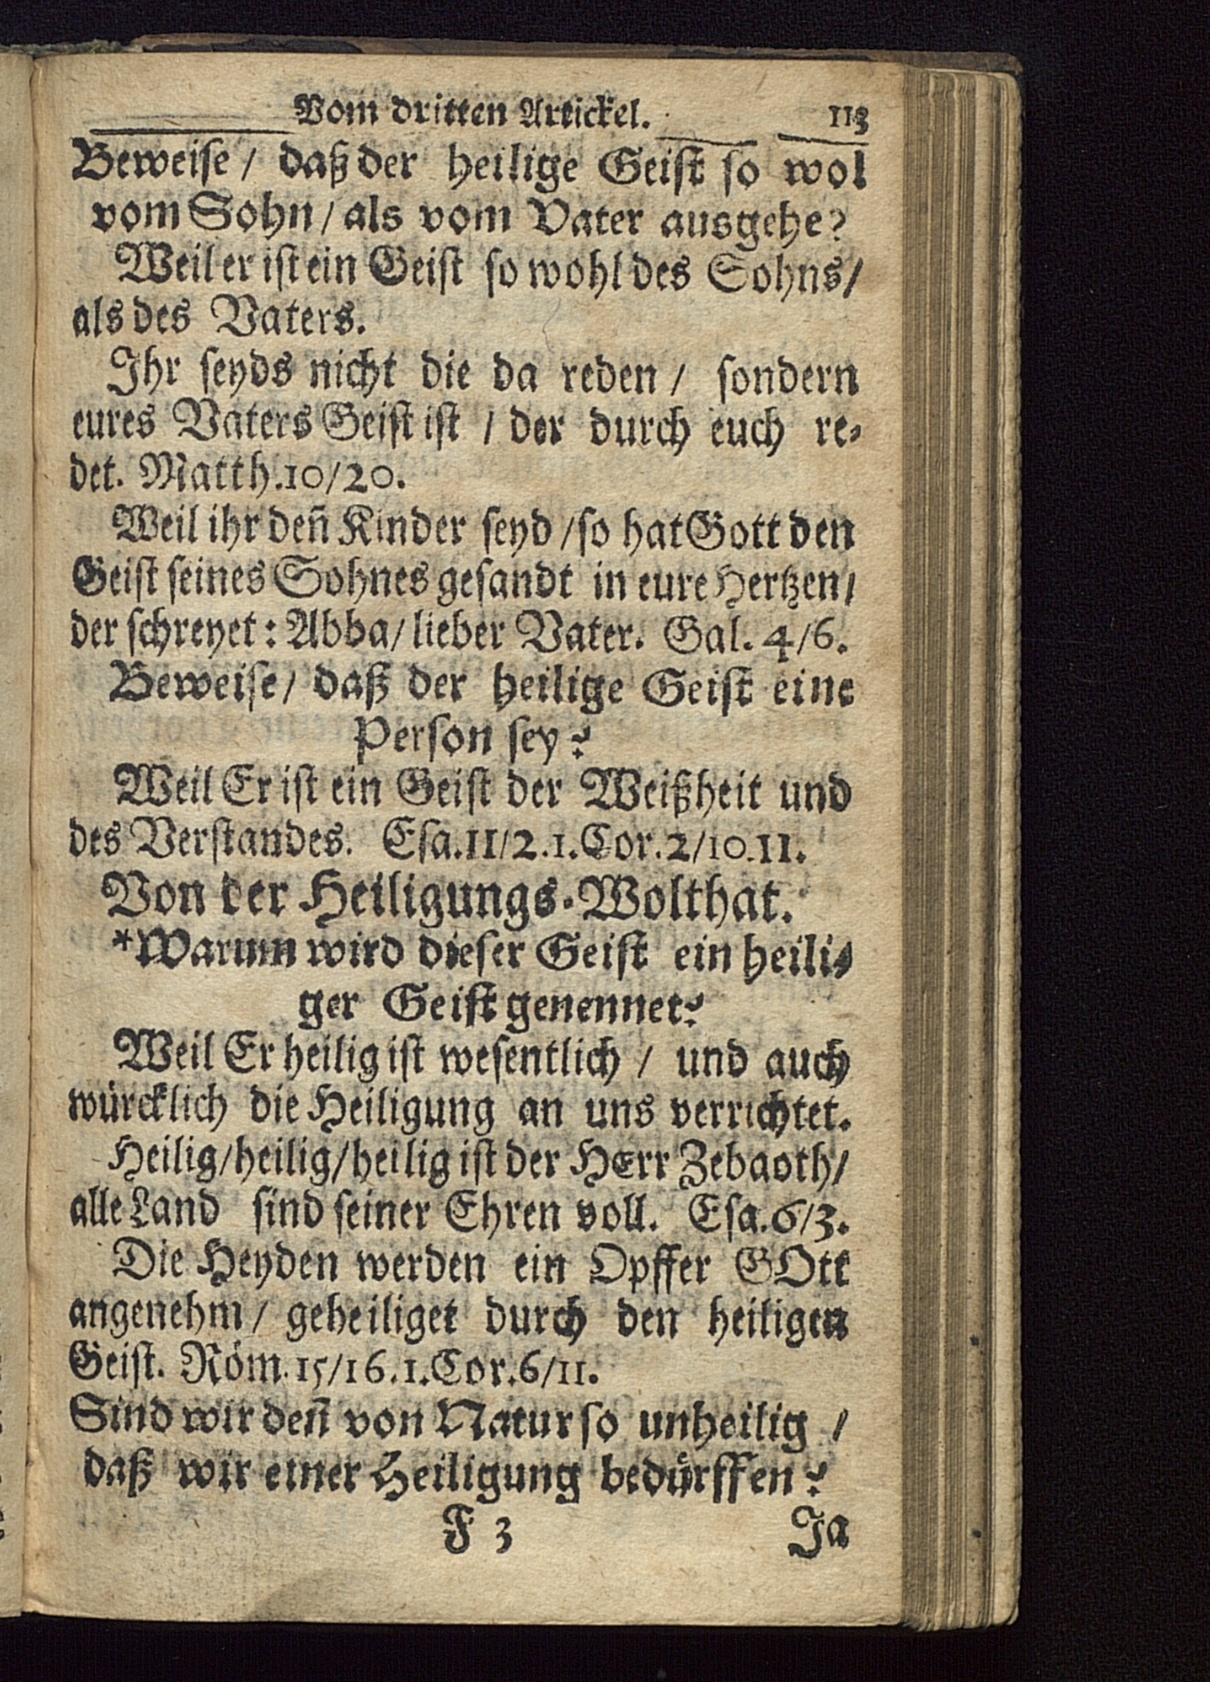 Vom dritten Artickel. 113
Beweise / daß der heilige Geist so wol
vom Sohn / als vom Vater ausgehe?
Weil er ist ein Geist so wohl des Sohns /
als des Vaters.
Ihr seyds nicht die da reden / sondern
eures Vaters Geist ist / der durch euch re-
det. Matth.10/20.
Weil ihr deñ Kinder seyd / so hat Gott den
Geist seines Sohnes gesandt in eure Hertzen /
der schreyet: Abba / lieber Vater. Gal. 4/6.
Beweise / daß der heilige Geist eine
Person sey?
Weil Er ist ein Geist der Weißheit und
des Verstandes. Esa.11/2.1.Cor.2/10.11.
Von der Heiligungs-Wolthat.
*Warum wird dieser Geist ein heili-
ger Geist genennet?
Weil Er heilig ist wesentlich / und auch
würcklich die Heiligung an uns verrichtet.
Heilig / heilig / heilig ist der HErr Zebaoth /
alle Land sind seiner Ehren voll. Esa.6/3.
Die Heyden werden ein Opffer GOtt
angenehm / geheiliget durch den heiligen
Geist. Röm.15/16.1.Cor.6/11.
Sind wir deñ von Natur so unheilig /
daß wir einer Heiligung bedürffen?
F 3 Ja